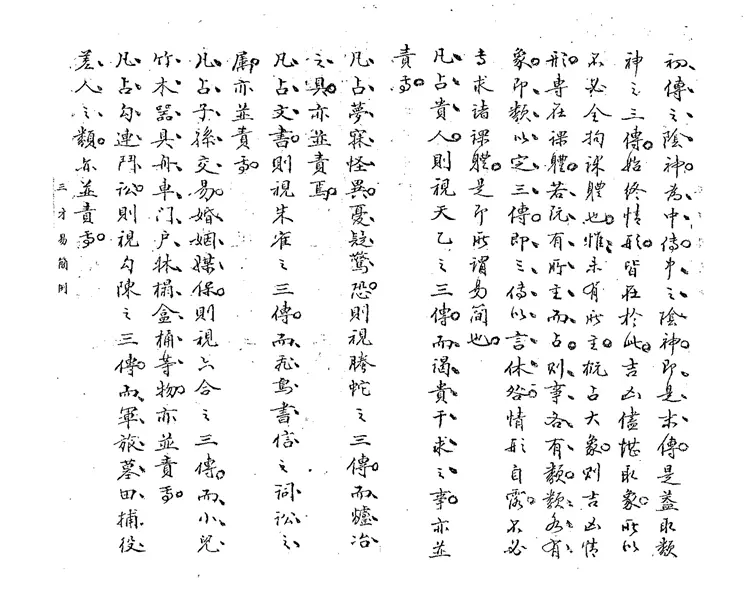 初傳之陰神為中傳中之陰神即是末傳是蓋取類
神之三傳始終情形皆在於此吉凶儘堪取象所以
不必全拘課體也惟未有所主概占大象則吉凶情
形專在課體若既有所主而占則事各有類類各有
象即類以定三傳即三傳以言休咎情形自露不必
专求诸課體是即所謂易簡也
凡占貴人則視天乙之三傳而謁貴干求之事亦並
責焉
凡占夢寐怪異憂疑驚恐則視騰蛇之三傳而爐冶
之具亦並責焉
凡占文書則視朱雀之三傳而飛鳥書信之詞訟之
屬亦並責焉
凡占子孫交易婚姻媒保則視六合之三傳而小兒
竹木器具舟車门户牀榻盒桶等物亦並責焉
凡占勾連鬥訟則視勾陳之三傳而軍旅墓田捕役
差人之類亦並責焉
三才易簡例